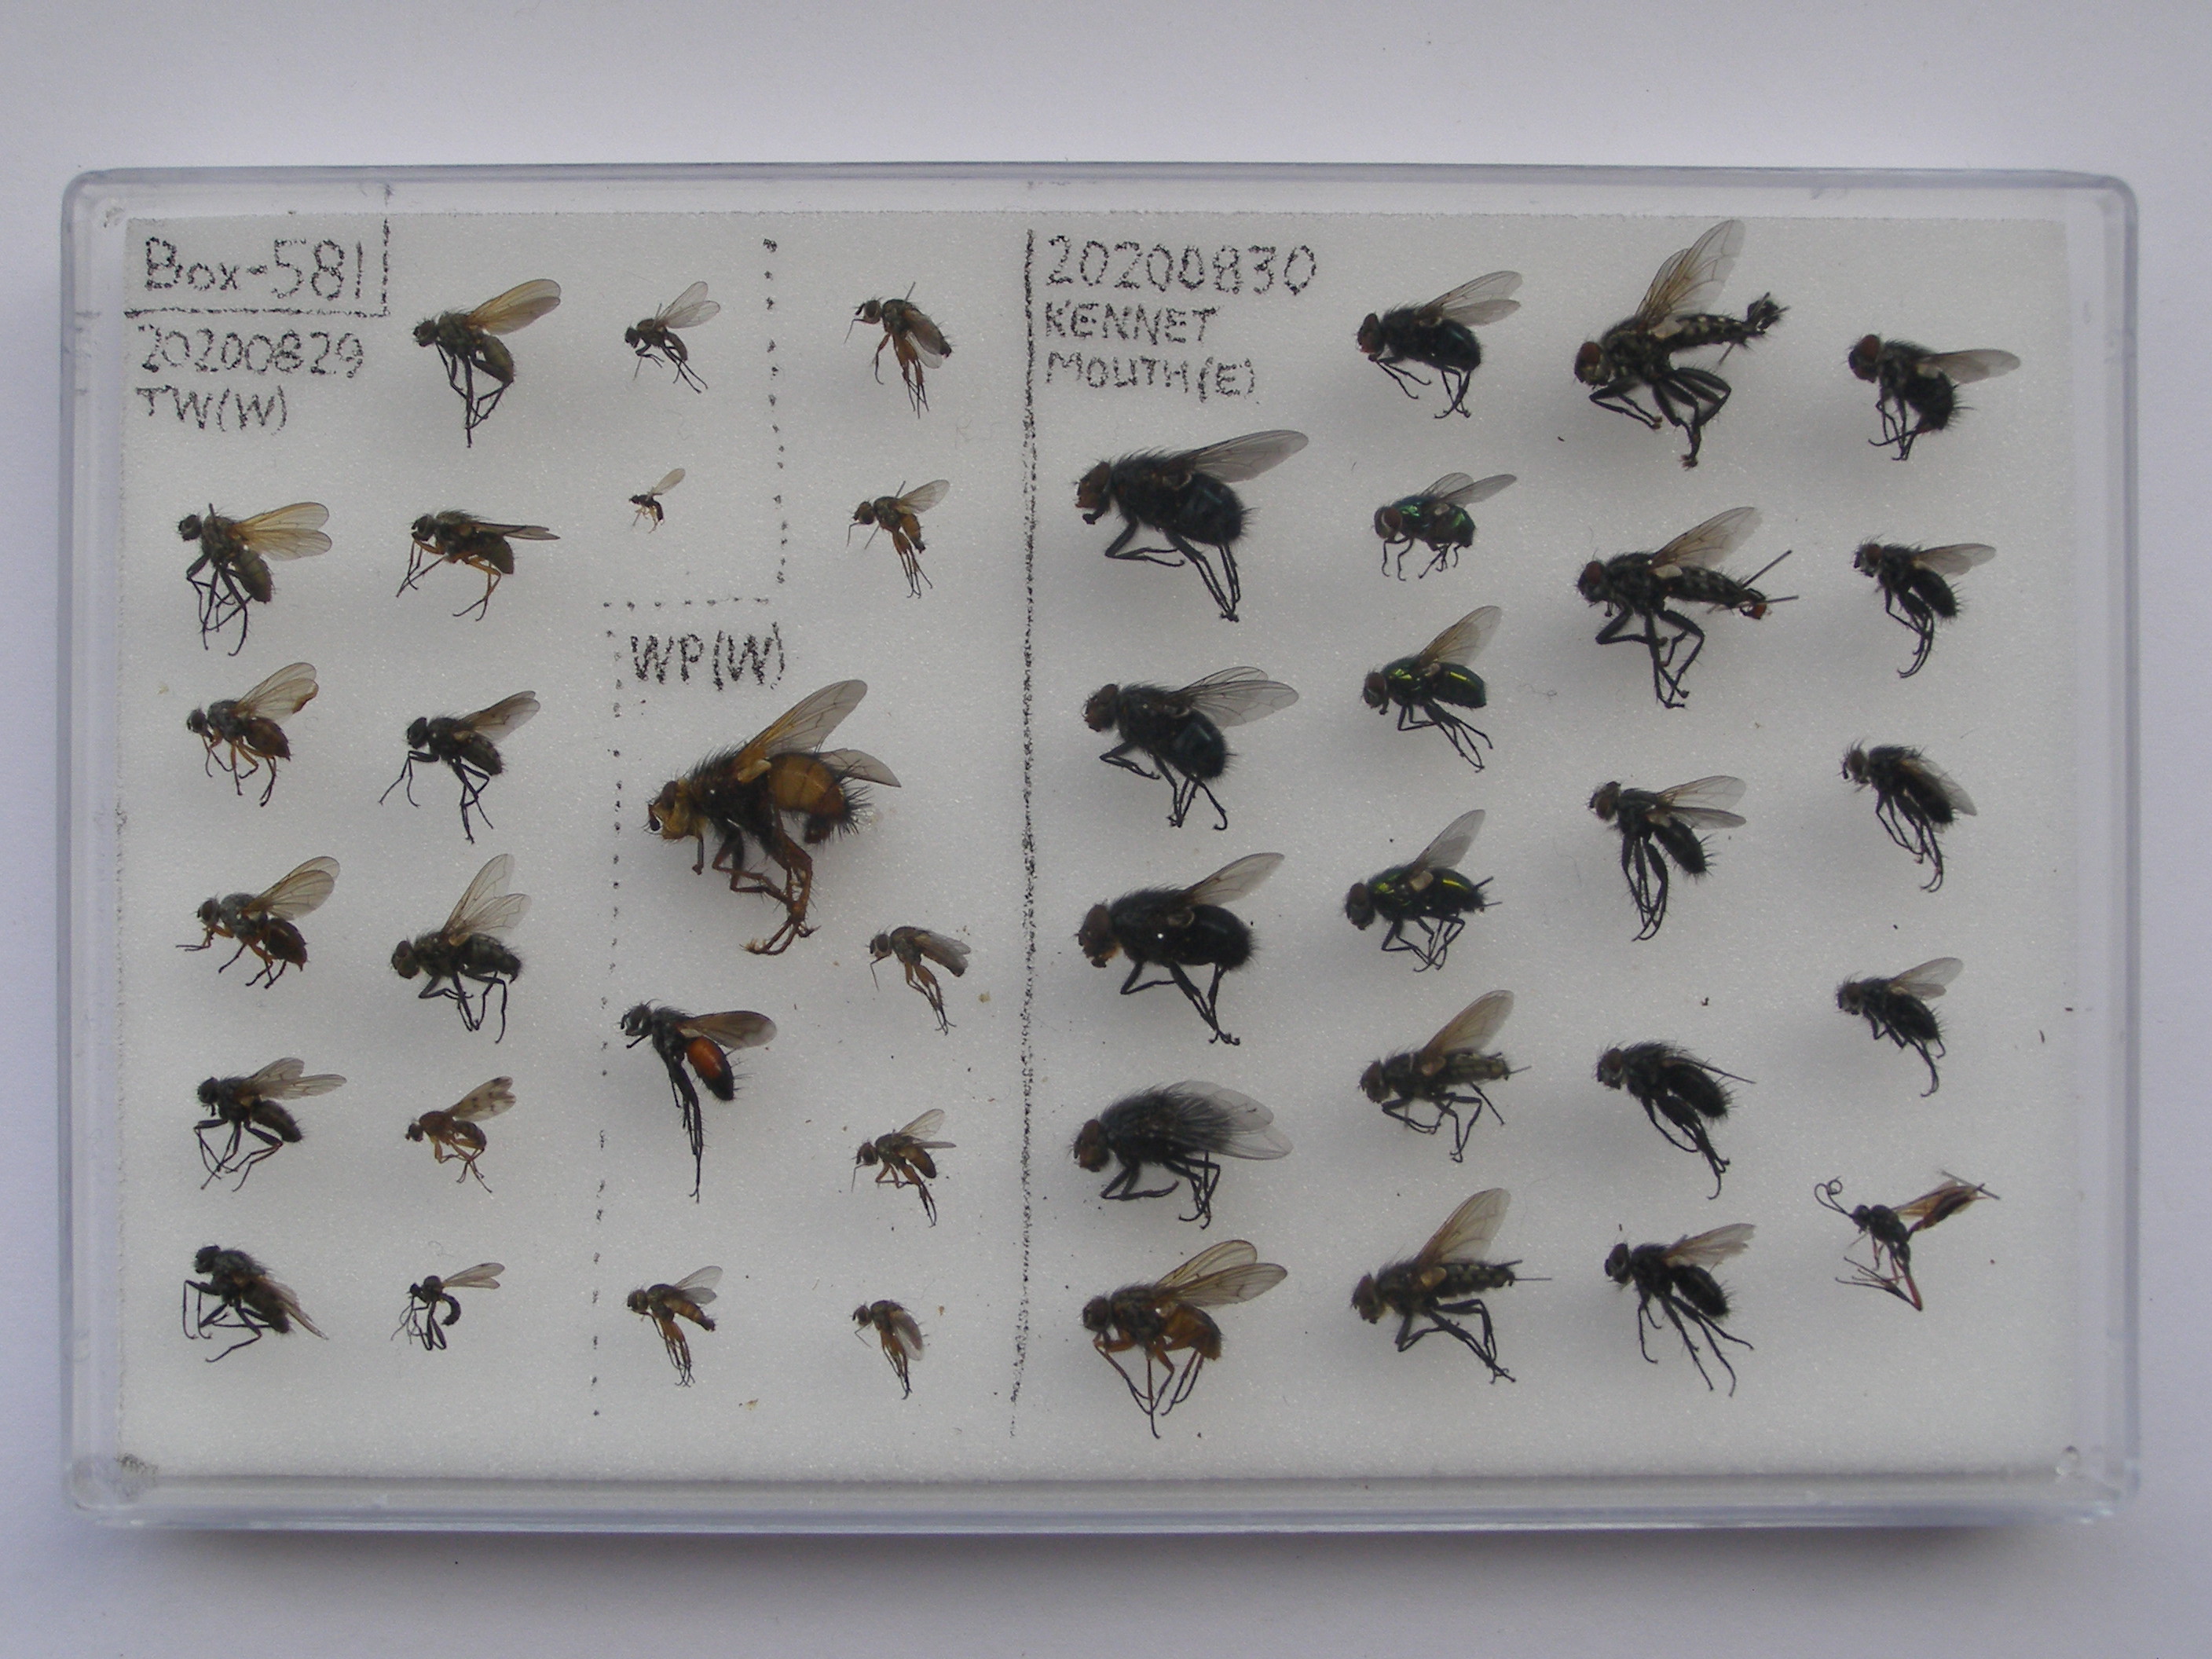 Box-581
20200829
TW(W)
WP(W)
20200830
KENNET
MOUTH(E)